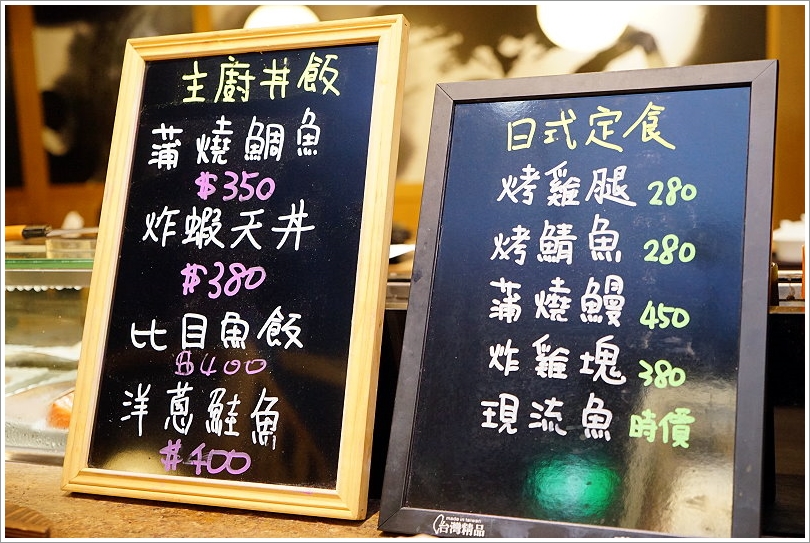 主廚丼飯
蒲燒鯛魚
$350
炸蝦天丼
$380
比目魚飯
$400
洋蔥鮭魚
$400
日式定食
烤雞腿 280
烤鯖魚 280
蒲燒鰻 450
炸雞塊 380
現流魚 時價
made in taiwan
台灣精品